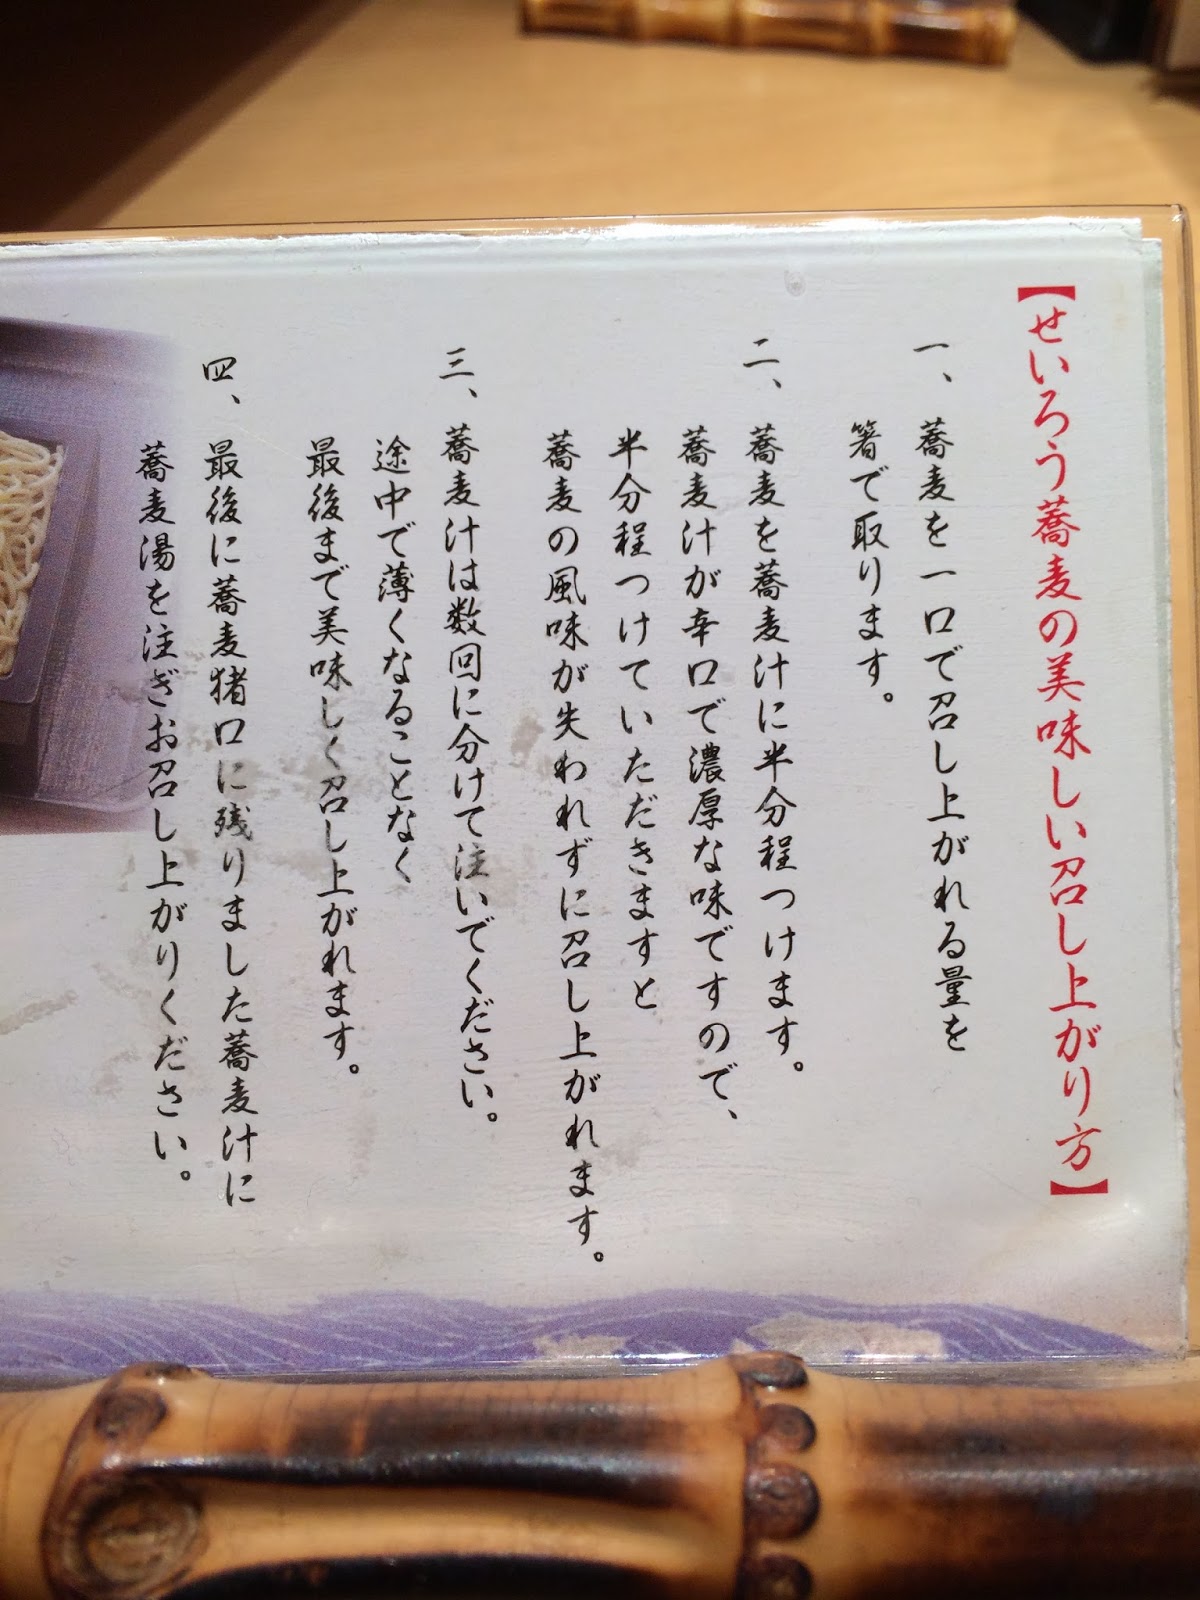 【せいろう蕎麦の美味しい召し上がり方】
一、蕎麦を一口で召し上がれる量を
箸で取ります。
二、蕎麦を蕎麦汁に半分程つけます。
蕎麦汁が辛口で濃厚な味ですので、
半分程つけていただきますと
蕎麦の風味が失われずに召し上がれます。
三、蕎麦汁は数回に分けて注いでください。
途中で薄くなることなく
最後まで美味しく召し上がれます。
四、最後に蕎麦猪口に残りました蕎麦汁に
蕎麦湯を注ぎお召し上がりください。